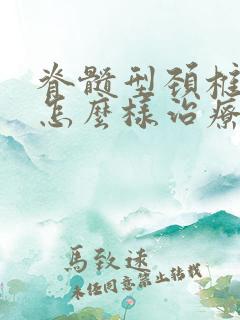 脊髓型颈椎
怎麽樣治療
馬致遠
未经同意禁止转载